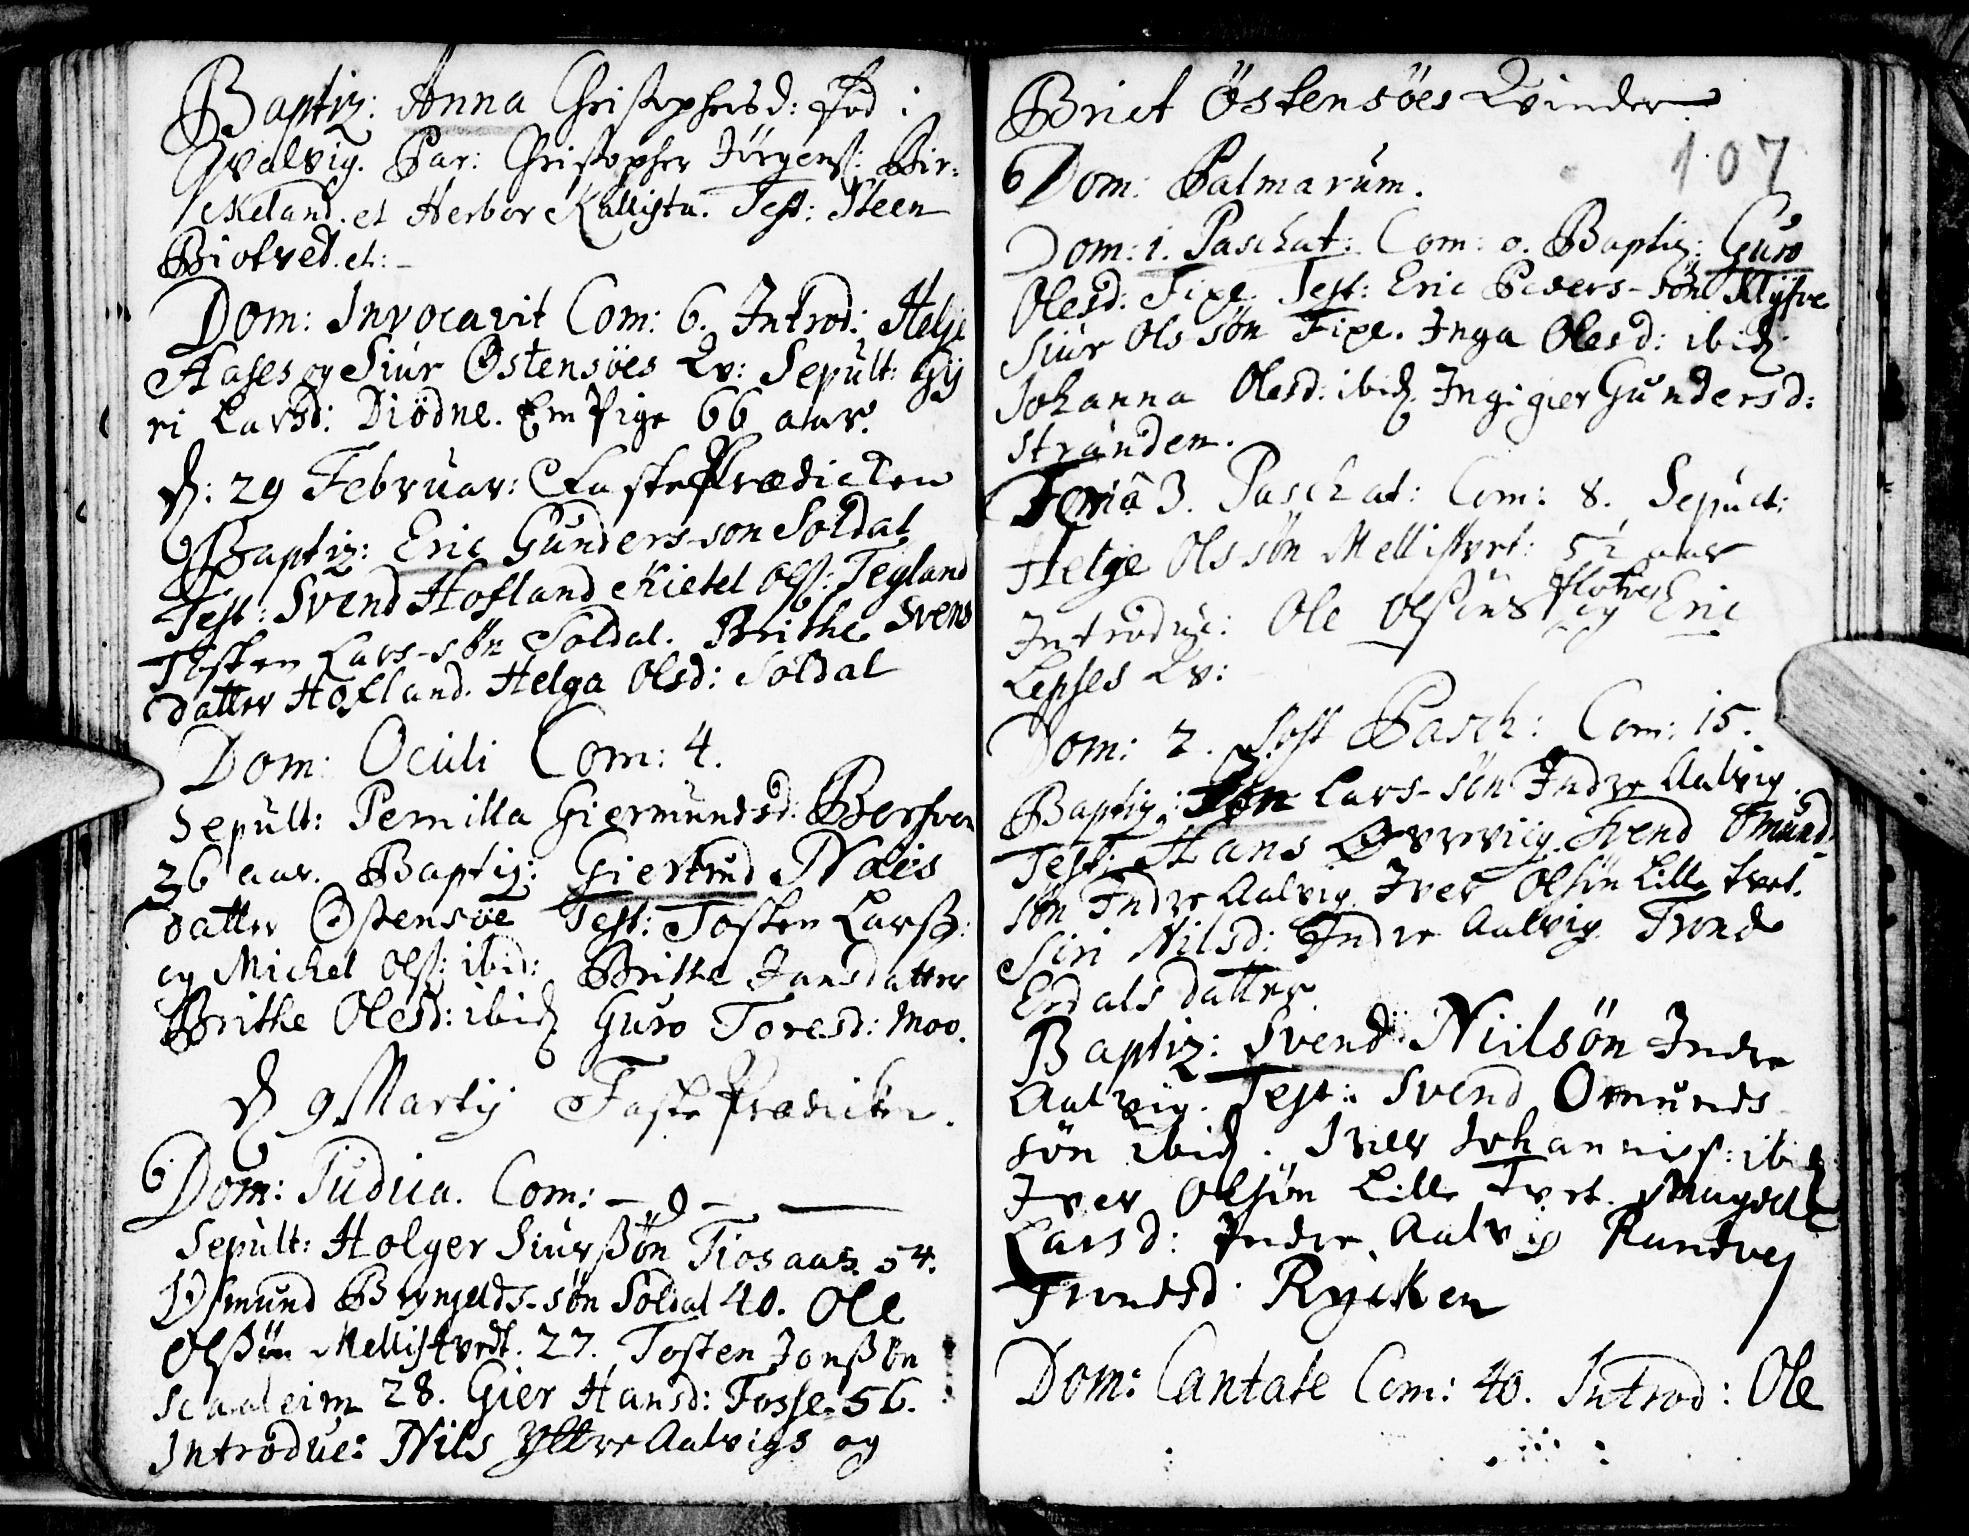 Baptiz: Anna Christophersd: Fød i
Qvalvig. Par: Christopher Jörgenß: Bir-
keland. et Herbor Kallista. Test: Steen
Biotved. et: -
Dom: Invocavit Com: 6. Introd: Helje
Aases og Siur Östensöes Qv: Sepult: Gy
ri Larsd: Diödne. Em Pige 66 aar.
d: 29 Februar: FastePrædicken
Baptiz: Eric Gunders-son Soldal
Test: Svend Hofland Kietel Olß: Tegland
Tosten Lars-søn Soldal. Brithe Svens
datter Hofland. Helga Olsd: Soldal
Dom: Oculi Com: 4.
Sepult: Pernilla Giermundsd: Berhven
36 aar. Baptiz: Giertrud Nels
datter Östensöe Test: Tosten Larsß:
og Michel Olß: ibid: Brithe Jansdatter
Brithe Olesd: ibid Guro Toresd: Moo.
d 9 Martij FastePrædicken.
6 Dom: Judica. Com: - 0 -
Sepult: Holger Siurßön Tiosaas. 54.
Osmund Bryngelds-søn Soldal 40. Ole
Olßön Mellistvedt. 27. Tosten Jonßøn
Scaaleim 28. Gier Hansd: Fosse. 56.
Introduc: Nils Yttre Aalvigs og
Brict Östensöes Qvinder
107
6 Dom: Palmarum.
Dom: 1. Paschat: Com: 0. Baptiz: Guro
Olesd: Fixe. Test: Eric Peders-søn Klyfve
Siur Ols søn Fixe. Inga Olesd: ibid
Johanna Olesd: ibid. Ingigier Gundersd:
stranden.
Feriâ 3. Paschat: Com: 8. Sepult:
Helge Ols søn Mellistvet: 5½ aar
Flotved
Introduc: Ole Olsöns og Eric
Lepses Qv:
Dom: 2. post Pasch: Com: 15.
Baptiz: Lars-søn Indre Aalvig.
Test: Hans Svend Omund
søn Indre Aalvig. Iver Olsøn Lille tvet.
Siri Nilsd: Indre Aalvig. Trond
Erdals datter
Baptiz: Svend Niilsön Indre
Aalvig. Test: Svend Omunds
søn ibid. Iver Johannisß: ibid
Iver Olsjøn Lille Tvet. Magdel
Larsd: Indre Aalvig Randvej
Trondsd: Rycken
Dom: Cantate Com: 40. Introd: Ole